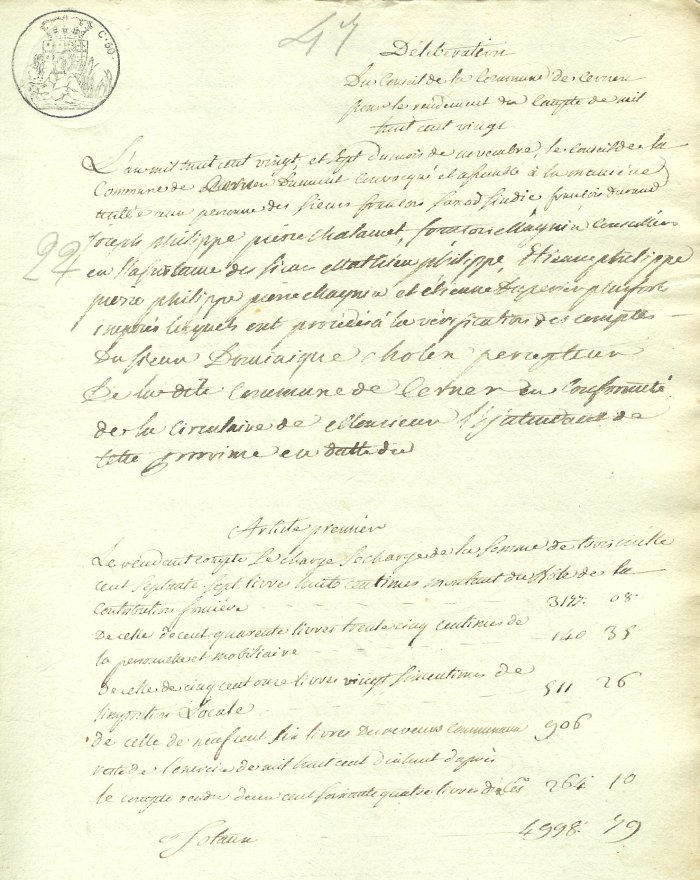 C. 60.
47
Délibération
Du Conseil de la Commune de Cernex
pour le rendement du Compte de mil
huit cent vingt
L'an mil huit cent vingt, et sept du mois de novembre, le Conseil de la
Commune de Cernex Dument Convoqué et assemblé à la manière
aux personnes des Sieurs françois Sindic françois Durand
22
joseph philippe pierre Chatamet, françois Magnin Conseillers
en l'assistance des Sieurs Mathieu philippe, Etienne philippe
pierre philippe pierre Magnin et etienne Duperier plus forts
imposés lesquels ont procédés à la vérification des comptes
Du Sieur Dominique Cholex percepteur
De la dite Commune de Cernex en Conformité
de la Circulaire de Monsieur l'Intendant de
Cette province en datte du
Article premier
Le rendant compte Se Charge de la Somme de trois mille
cent Septante Sept livres huit centimes montant du Rôle de la
Contribution foncière 3177. 08.
De celle de cent quarente livres trente cinq centimes de
la personnelle et mobiliaire 140 35
de celle de cinq cent onze livres vingt six centimes de
l'imposition Locale 511 26
de celle de neuf cent six livres Des revenus Communaux 906
reste de l'exercice de mil huit cent dix huit d'après
le compte rendu deux cent soixante quatre livres dix Cmes 264 10
4998. 79